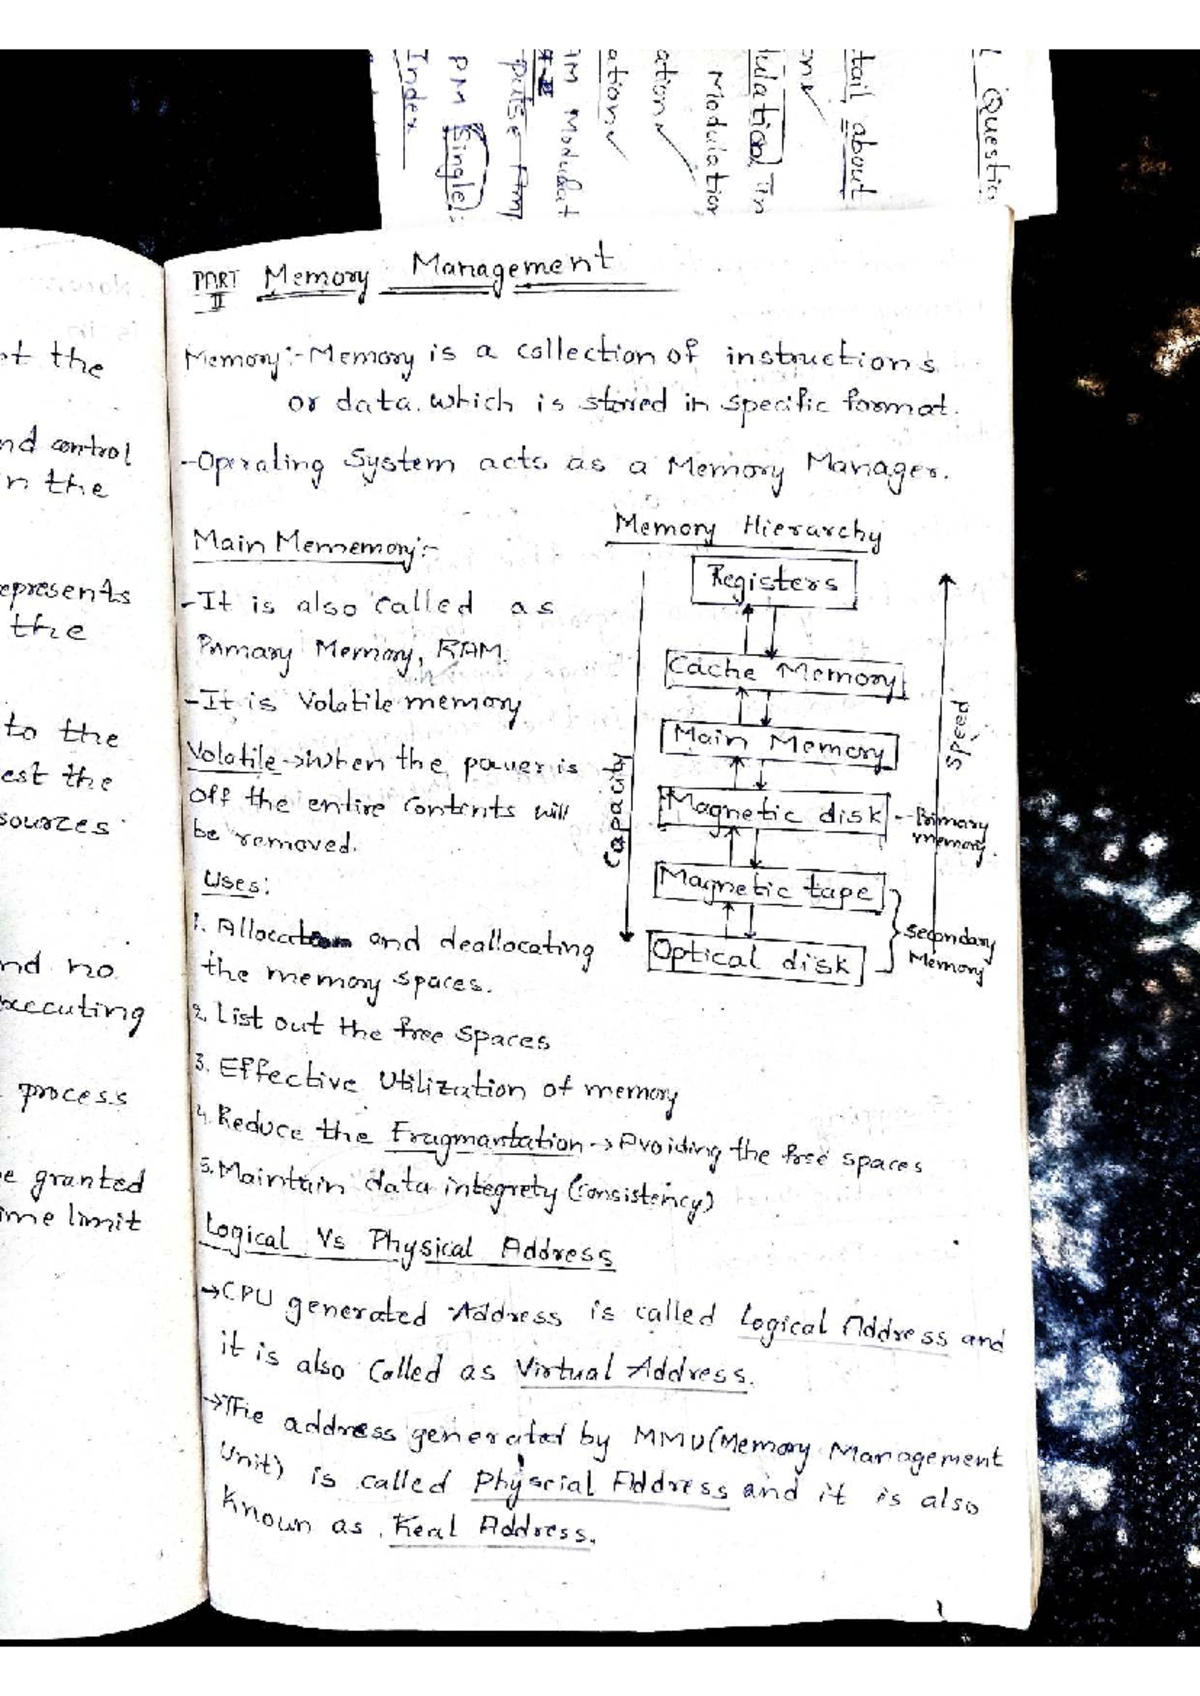 Questio
tail about
one
ulation in
Modulation
ation
AM Modulat
ation
pulse Am
PM Single
Index
ot the
nd control
in the
epresents
the
to the
est the
sources
nd no
executing
process
e granted
ime limit
PART II Memory Management
Memory:- Memory is a collection of instructions
or data. which is stored in specific format.
-Operating System acts as a Memory Manager.
Main Mememory:-
-It is also called as
Primary Memory, RAM.
-It is Volatile memory
Volatile → when the power is
off the entire contents will
be removed.
Uses:
1. Allocation and deallocating
the memory spaces.
Memory Hierarchy
Registers
Cache Memory
Main Memory
Magnetic disk -- Primary memory.
Magnetic tape
Optical disk
Secondary Memory
Capacity
Speed
2. List out the free spaces
3. Effective Utilization of memory
4. Reduce the Fragmantation → Avoiding the free spaces
5. Maintain data integrety (consistency)
Logical Vs Physical Address
→ CPU generated Address is called Logical Address and
it is also called as Virtual Address.
→ The address generated by MMU (Memory Management
Unit) is called Physcial Address and it is also
known as Real Address.